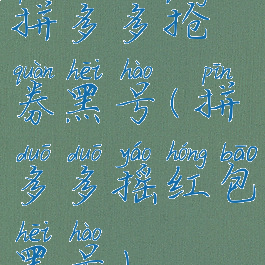 拼多多抢
quàn hēi hào pīn
券黑号(拼
duō duō yáo hóng bāo
多多摇红包
hēi hào
黑号)